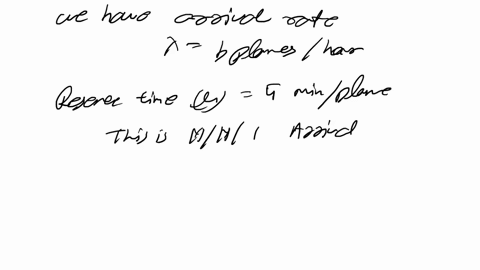 we have arrival rate
λ = 6 planes/hour
Reserve time (μ) = 5 min/plane
This is M/M/1 Arrival